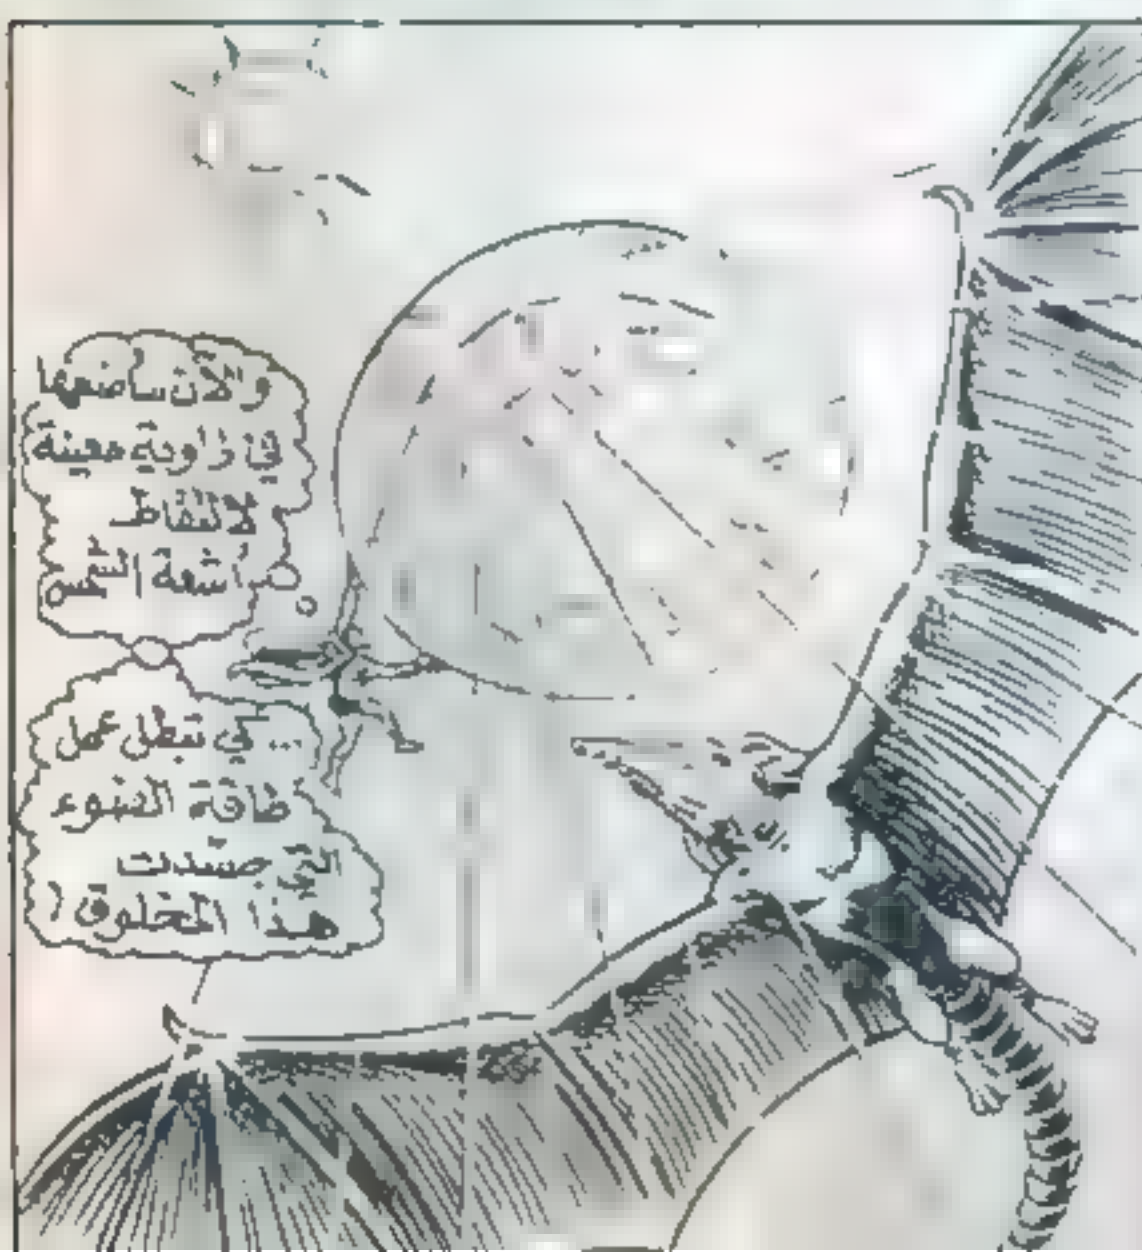 والآن ساضعها
في زاوية معينة
لالتقاط
اشعة الشمس
... كي تبطل عمل
طاقة الضوء
التي جسّدت
هذا المخلوق !